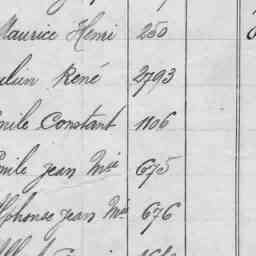 Maurice Henri 250
René 2793
Emile Constant 1106
Emile Jean Mie 675
Alphonse Jean Mie 676